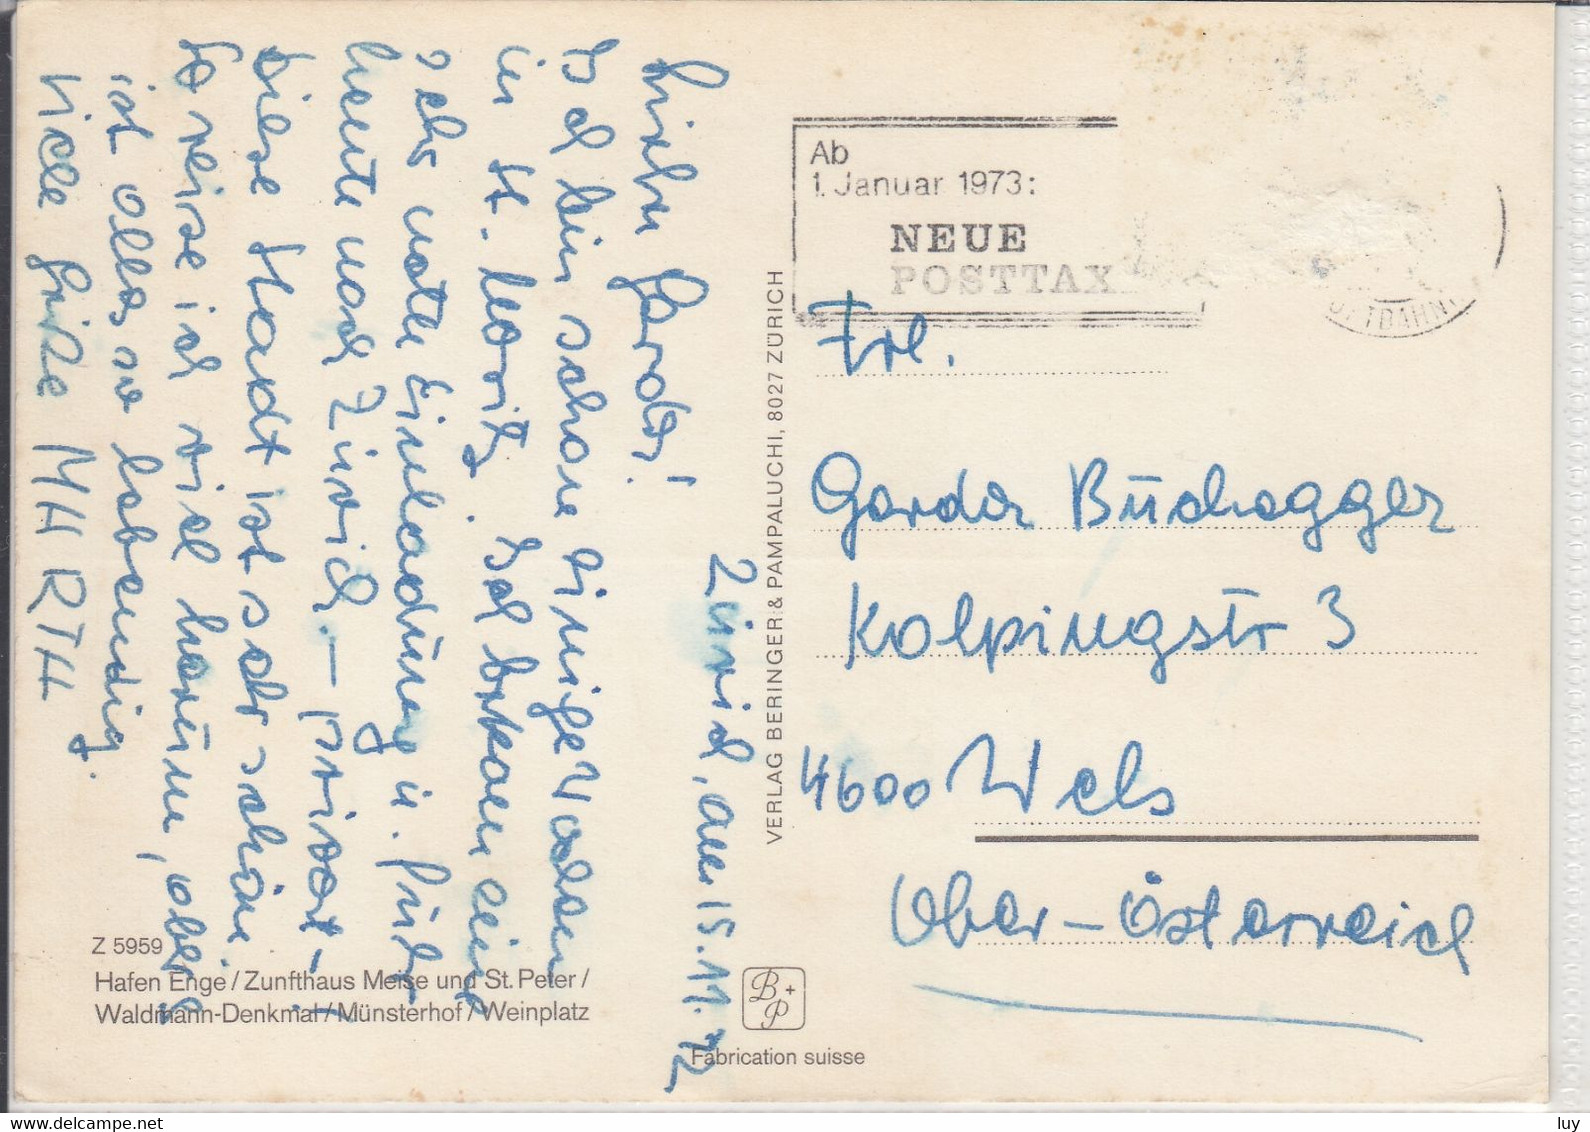 Zürich, am 15.11.72
Liebe Gerda!
Ich bin schon einige Wochen
in St. Moritz. Ich bekam eine
sehr nette Einladung u. fuhr
heute nach Zürich. – privat –
Diese Stadt ist sehr schön!
So reise ich viel herum, aber es
ist alles so lebendig.
Viele Grüße
Z 5959
Hafen Enge / Zunfthaus Meise und St. Peter /
Waldmann-Denkmal / Münsterhof / Weinplatz
VERLAG BERINGER & PAMPALUCHI, 8027 ZÜRICH
B + P
Fabrication suisse
Ab
1. Januar 1973:
NEUE
POSTTAX
Frl.
Gerda Buchegger
Kolpingstr 3
4600 Wels
Ober-Österreich
www.delcampe.net
luy